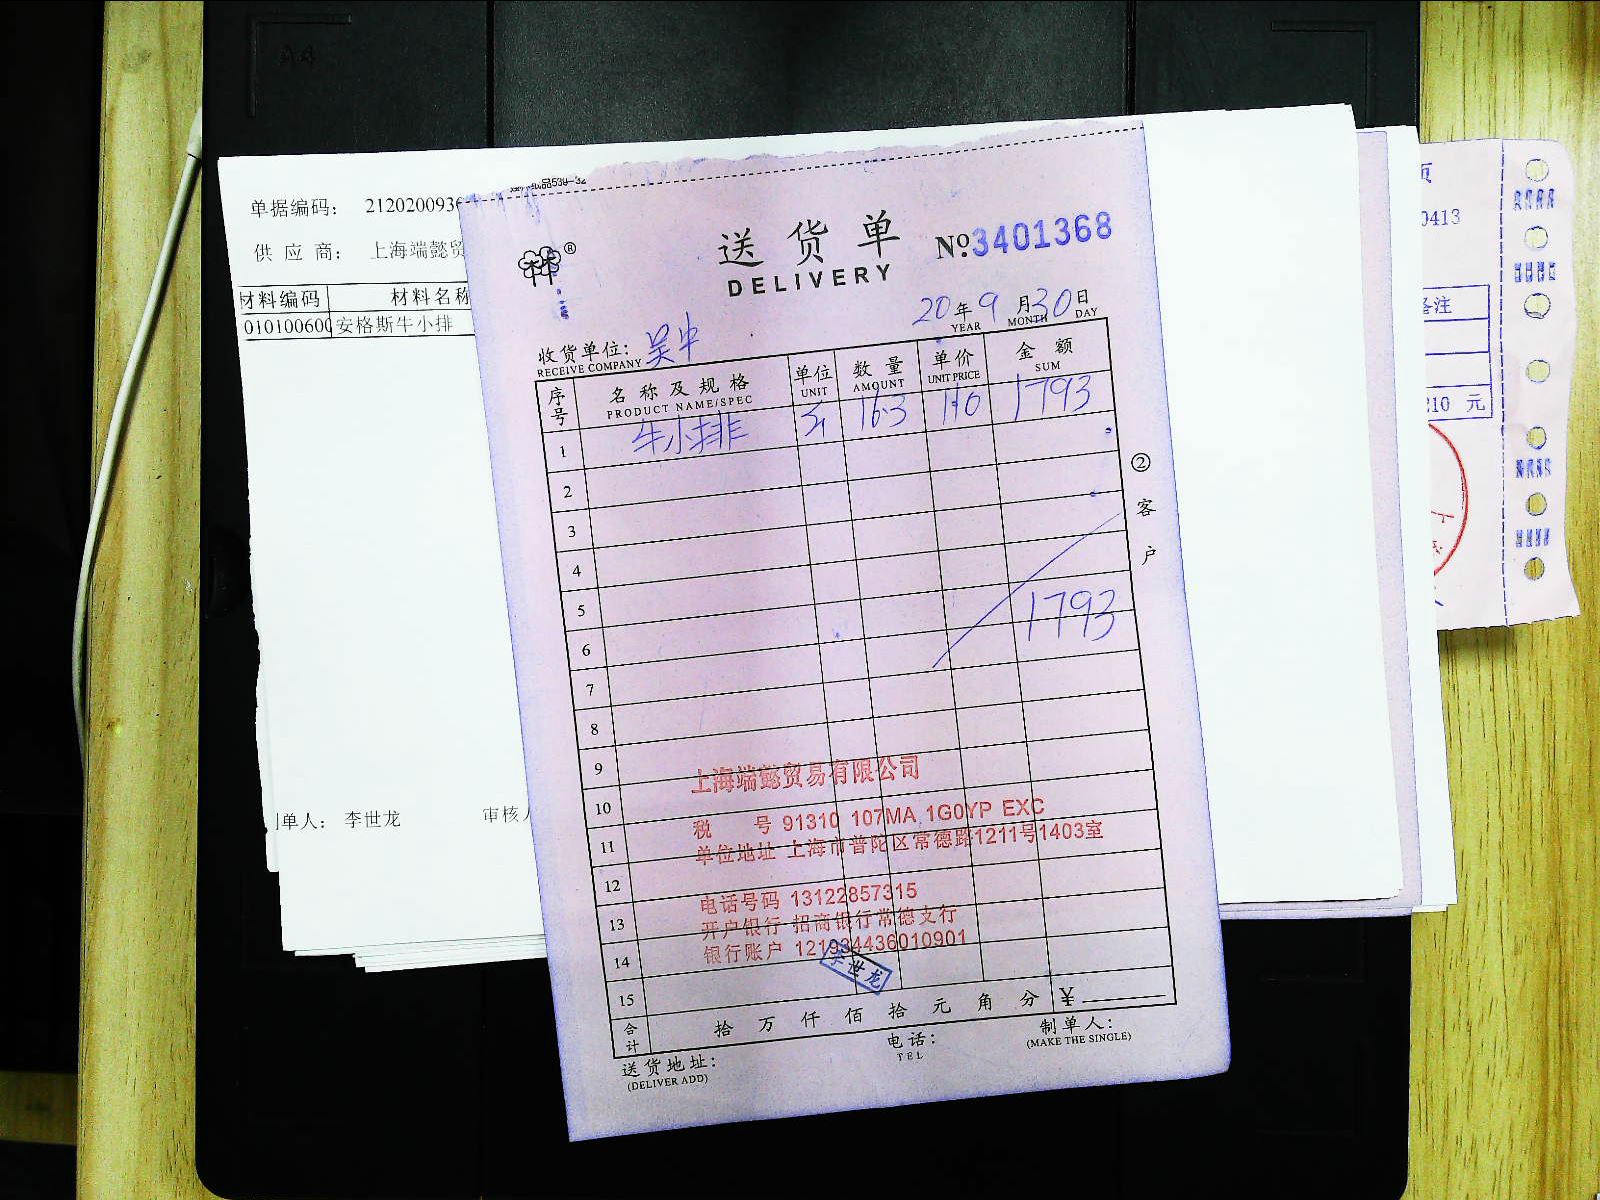 单据编码： 212020093
供 应 商： 上海端懿贸
材料编码 材料名称
010100600 安格斯牛小排
制单人： 李世龙 审核人
送货单
DELIVERY
№3401368
20年9月30日
YEAR MONTH DAY
收货单位：吴中
RECEIVE COMPANY
序号 名称及规格 单位 数量 单价 金额
PRODUCT NAME/SPEC UNIT AMOUNT UNIT PRICE SUM
1 牛小排 斤 16.3 110 1793
2
3
4
5
6 1793
7
8
9
10
11
12
13
14
15
②客户
上海端懿贸易有限公司
税 号 91310 107MA 1G0YP EXC
单位地址 上海市普陀区常德路1211号1403室
电话号码 13122857315
开户银行 招商银行常德支行
银行账户 121934436010901
李世龙
合计 拾 万 仟 佰 拾 元 角 分 ¥
送货地址： 电话： 制单人：
(DELIVER ADD) TEL (MAKE THE SINGLE)
页
0413
备注
210 元